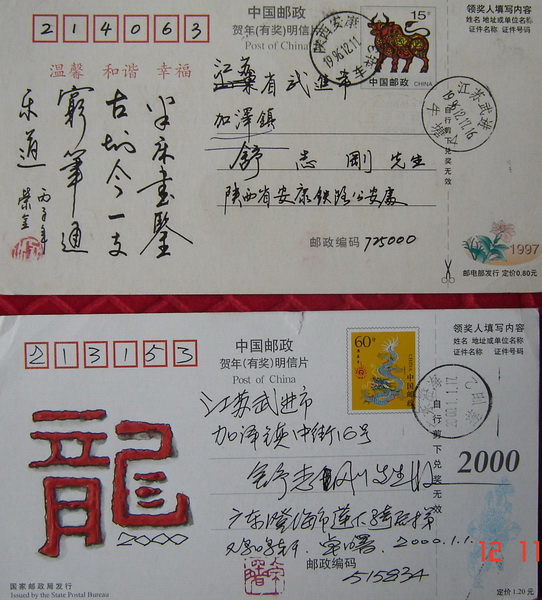 中国邮政
贺年(有奖)明信片
Post of China
214063
15分
中国邮政 CHINA
领奖人填写内容
姓名 地址或单位名称
证件名称 证件号码
温馨 和谐 幸福
江蘇省武進市
加澤鎮
舒志剛先生
陕西省安康铁路公安處
邮政编码 725000
古今一支
窮筆通
乐道
丙子年
自行剪下兑奖无效
1997
邮电部发行 定价0.80元
中国邮政
贺年(有奖)明信片
Post of China
213153
60分
中国邮政
CHINA
领奖人填写内容
姓名 地址或单位名称
证件名称 证件号码
江苏武进市
加泽镇中街16号
舒志刚先生收
2000
自行剪下兑奖无效
龍
2000
广东澄海市莲下
2000.1.1.
邮政编码
515834
国家邮政局发行
Issued by the State Postal Bureau
定价1.20元
12 11